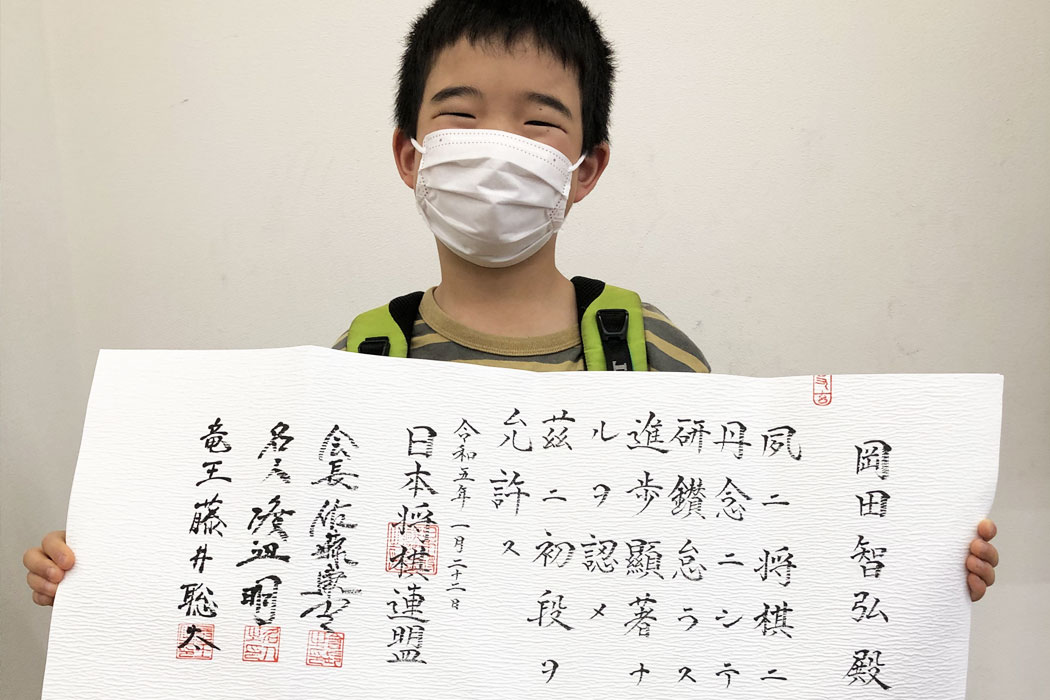 岡田智弘殿
夙ニ将棋ニ
丹念ニシテ
研鑽怠ラス
進歩顯著ナ
ルヲ認メ
茲ニ初段ヲ
允許ス
令和五年一月二十二日
日本将棋連盟
会長佐藤康光
名人渡辺明
竜王藤井聡太